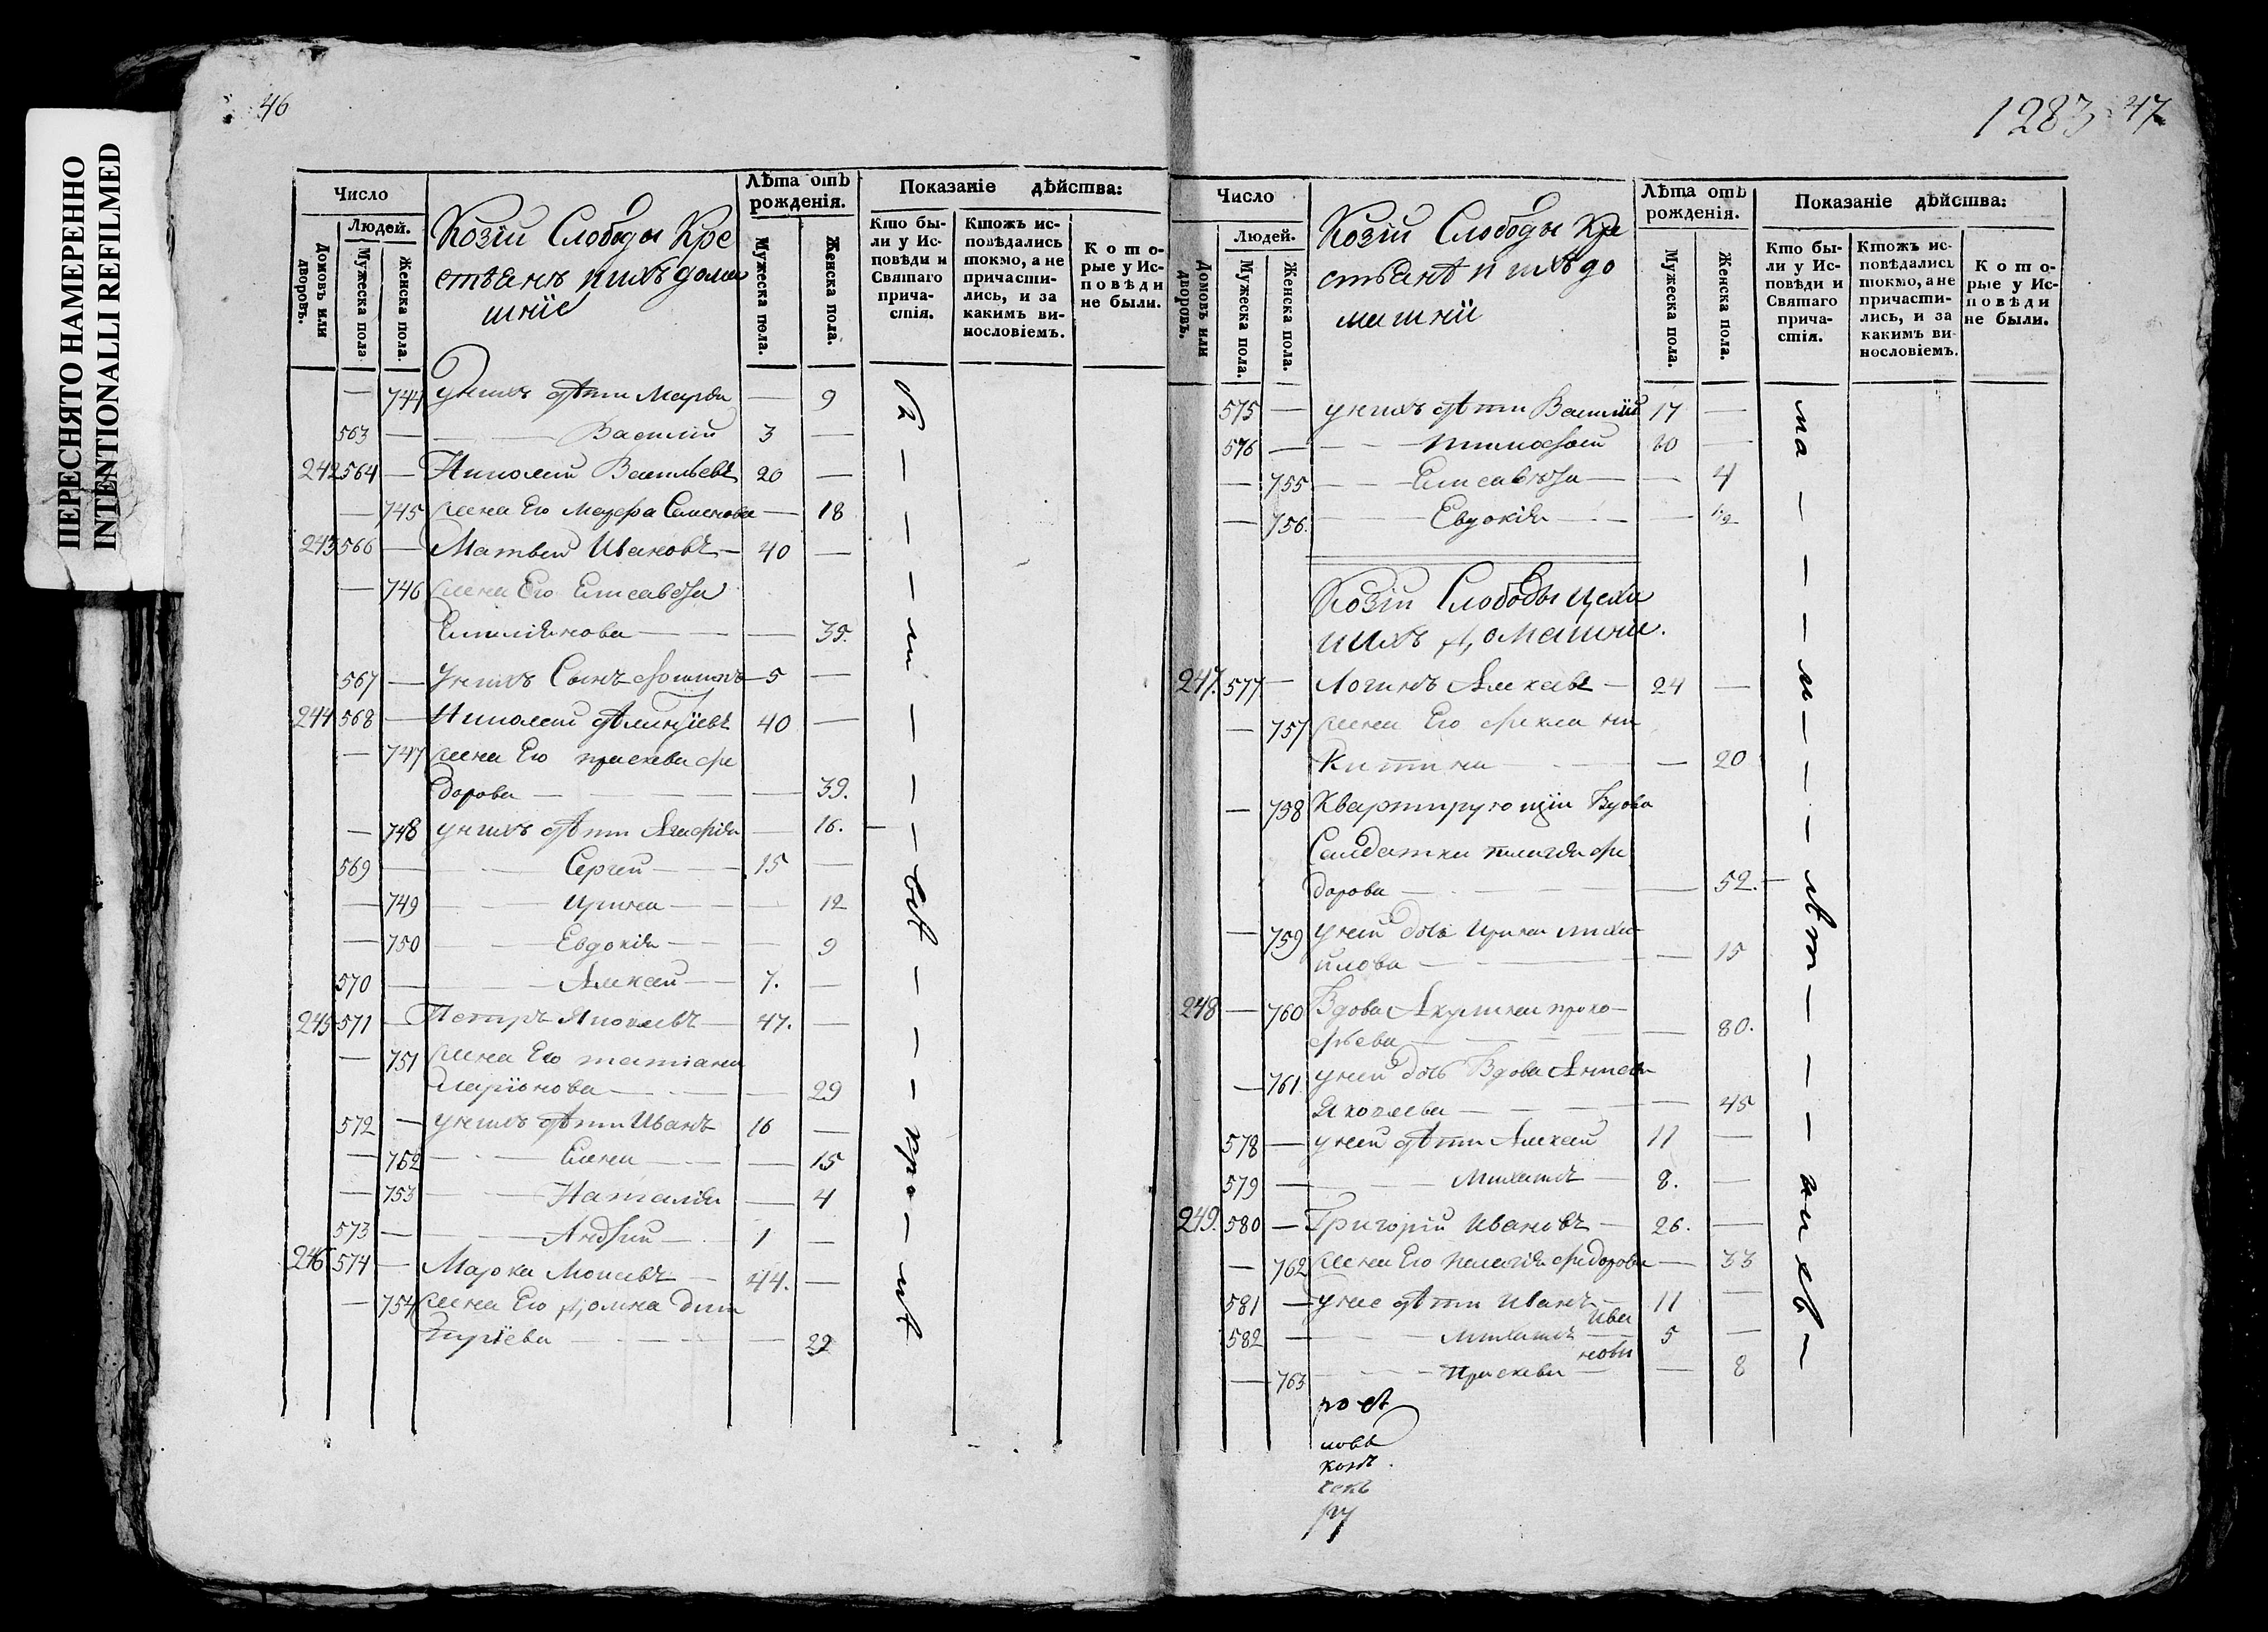 ПЕРЕСНЯТО НАМЕРЕННО
INTENTIONALLI REFILMED
46
Число
Людей.
Домовъ или дворовъ.
Мужеска пола
Женска пола.
Козіи Слободы Кре
стьянъ иихъ дома
шніе
Лѣта отъ рожденія.
Мужеска пола.
Женска пола.
Показаніе дѣйства:
Кто бы-
ли у Ис-
повѣди и
Святаго
прича-
стія.
Ктожъ ис-
повѣдались
токмо, а не
причасти-
лись, и за
какимъ ви-
нословіемъ.
Кото-
рые у Ис-
повѣди
не были.
— 744 Унихъ дѣти Марфа — 9
563 — Василій 3 —
242 564 — Николай Васильевъ 20 —
— 745 жена Его Мавра Семенова — 18
243 566 — Матвей Ивановъ — 40 —
— 746 жена Его Елисавефа
Емиліянова — 39.
567 — Унихъ Сынъ Филипъ 5 —
244 568 — Николай 40 —
— 747 жена Его праскева фе
дорова — 39.
— 748 унихъ дѣти — 16.
569 — Сергей — 15 —
— 749 — Ирина — 12
— 750 — Евдокія — 9
570 — Алексей — 7. —
245 571 — Петръ Яковлевъ — 47. —
— 751 жена Его татіана
иларіонова — 29
572 — унихъ дѣти Иванъ 16 —
— 752 — Елена — 15
— 753 — Наталія — 4
573 — Андрей — 1 —
246 574 — Марко Моисевъ — 44. —
— 754 жена Его Домна дим
трїева — 29
1283 47
Число
Людей.
Домовъ или дворовъ.
Мужеска пола.
Женска пола.
Козіи Слободы Кре
стьянъ и ихъ до
машніи
Лѣта отъ рожденія.
Мужеска пола.
Женска пола.
Показаніе дѣйства:
Кто бы-
ли у Ис-
повѣди и
Святаго
прича-
стія.
Ктожъ ис-
повѣдались
токмо, а не
причасти-
лись, и за
какимъ ви-
нословіемъ.
Кото-
рые у Ис-
повѣди
не были.
575 — унихъ дѣти Василій 17 —
576 — тимофей 10 —
— 755 — Елисавефа — 4
— 756. — Евдокія — 1/2
Козіи Слободы цехи
иихъ Домашніе.
247. 577 — Логинъ Алексевъ — 24 —
— 757 жена Его фекла ни
китина — 20
— 758 Квартирующіи Вдова
Салдатка пелагія фе
дорова — 52.
— 759 уней дочь Ирина михаи
илова — 15
248 — 760 Вдова Акулина проко-
фьева — 80.
— 761 уней дочь Вдова
Яковлева — 45
578 — уней дѣти Алексей 11 —
579 — Михаилъ 8. —
249. 580 — Григорій Ивановъ — 26. —
— 762 жена Его пелагія федорова — 33
581 — унее дѣти Иванъ 11 —
Ива
582 — Михаилъ — 5 —
новы
— 763 — Праскева — 8